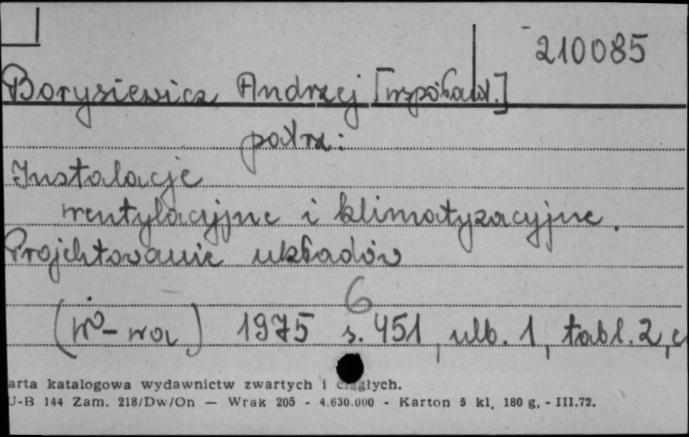 210085
Borysiewicz Andrzej [współaut.]
patrz:
Instalacje
wentylacyjne i klimatyzacyjne.
Projektowanie układów
6
(W-wa) 1975 s. 451, ulb. 1, tabl. 2, c
arta katalogowa wydawnictw zwartych i ciągłych.
U-B 144 Zam. 218/Dw/On — Wrak 205 - 4.630.000 - Karton 5 kl. 180 g. - III.72.